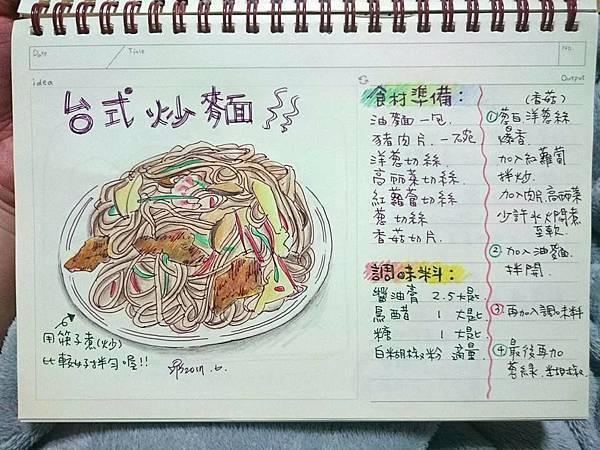 Date
Title
No.
idea
Output
台式炒麵
用筷子煮(炒)
比較好拌勻喔!!
2017.6.
食材準備:
油麵一包.
豬肉片.一碗
洋蔥切絲
高丽菜切絲.
紅蘿蔔切絲
蔥 切絲
香菇切片.
調味料:
醬油膏 2.5大匙.
烏醋 1 大匙
糖 1 大匙
白胡椒粉 適量.
(香菇)
①蔥白洋蔥絲
爆香.
加入紅蘿蔔
拌炒.
加入肉片,高丽菜
少許水火悶煮
至軟.
②加入油麵.
拌開.
③再加入調味料
④最後再加
蔥綠.胡椒.